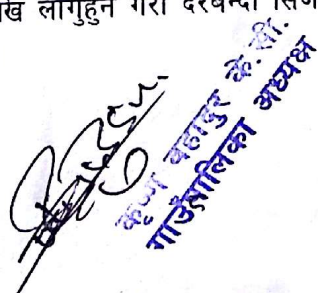 लागुहुने गरी दरबन्दी सिर्ज
कृष्ण बहादुर के.सी.
गाउँपालिका अध्यक्ष